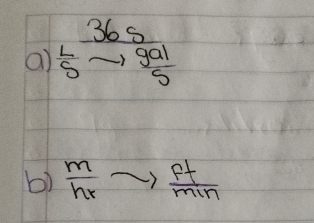 36 S
a) L/S → gal/S
b) m/hr → ft/min